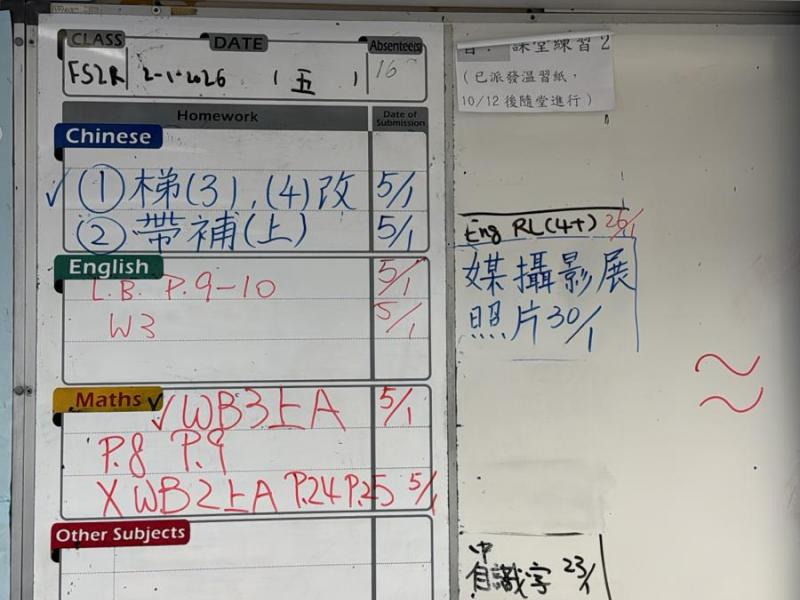 CLASS DATE Absentee(s)
2-1-2026 (五) 16
Homework Date of Submission
Chinese
✓ ① 梯(3), (4)改 5/1
② 帶補(上) 5/1
English
L.B. P.9-10 5/1
W3 5/1
Maths ✓
✓ WB3上A 5/1
P.8 P.9
X WB2上A P.24 P.25 5/1
Other Subjects
課堂練習 2
(已派發溫習紙，
10/12 後隨堂進行)
Eng RL(4+) 26/1
媒攝影展
照片30/1
中
自識字 23/1